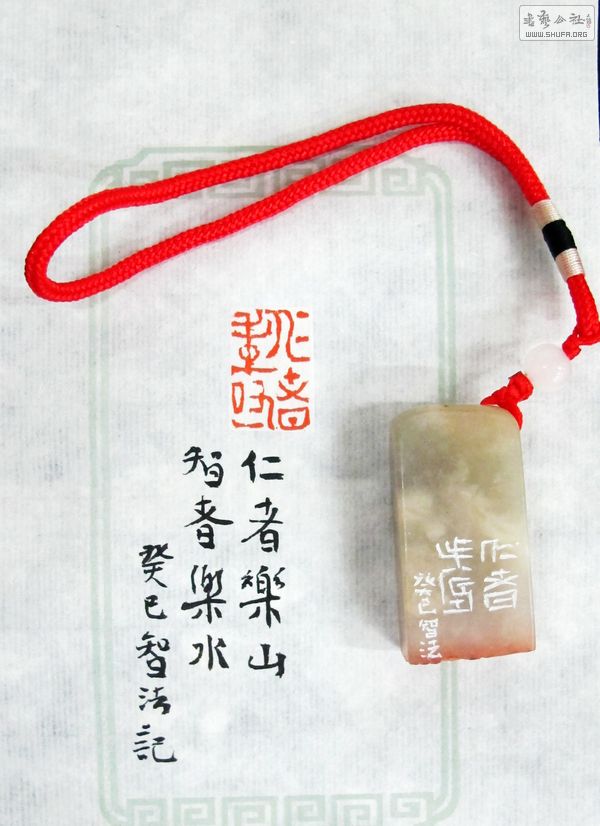 书艺公社
WWW.SHUFA.ORG
仁者
仁者樂山
智者樂水
癸巳智法記
仁者
癸巳智法